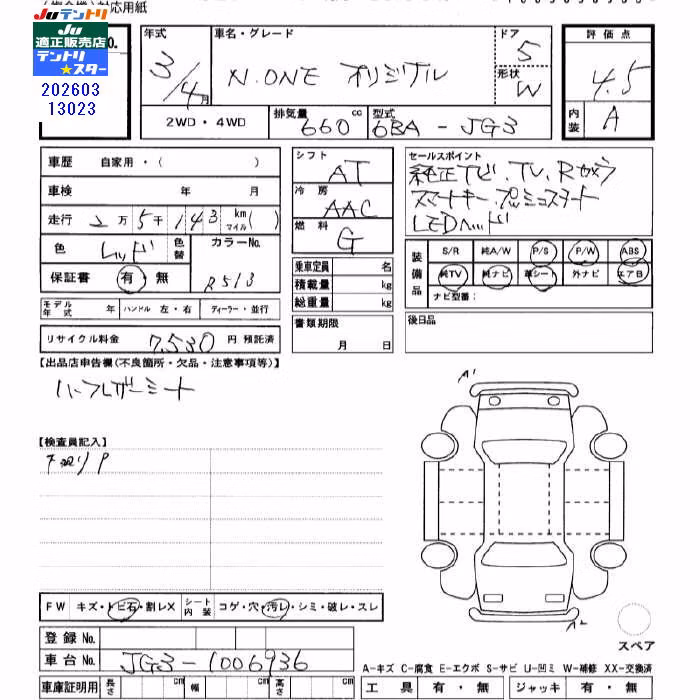 対応用紙
JUテントリ
JU
適正販売店
テントリ
★スター
202603
13023
No.
年式 車名・グレード ドア 評価点
3/4月 N.ONE オリジナル 5 4.5
形状 W
2WD・4WD 排気量 660cc 型式 6BA-JG3 内装 A
車歴 自家用・( )
車検 年 月
走行 2万5千143 km マイル( )
色 レッド 色替 カラーNo. R513
保証書 有・無
モデル年式 年 ハンドル 左・右 ディーラー・並行
リサイクル料金 7,530円 預託済
シフト AT
冷房 AAC
燃料 G
乗車定員 名
積載量 kg
総重量 kg
書類期限
月 日
セールスポイント
純正ナビ、TV、Rカメラ
スマートキー プッシュスタート
LEDヘッド
装備品 S/R 純A/W P/S P/W ABS
純TV 純ナビ 革シート 外ナビ エアB
ナビ型番:
後日品
【出品店申告欄(不良箇所・欠品・注意事項等)】
ハーフレザーシート
【検査員記入】
下廻りP
A1
A2
スペア
FW キズ・トビ石・割レX シート内装 コゲ・穴・汚レ・シミ・破レ・スレ
登録No.
車台No. JG3-1006936
車庫証明用 長さ cm 幅 cm 高さ cm
A-キズ C-腐食 E-エクボ S-サビ U-凹ミ W-補修 XX-交換済
工具 有・無 ジャッキ 有・無